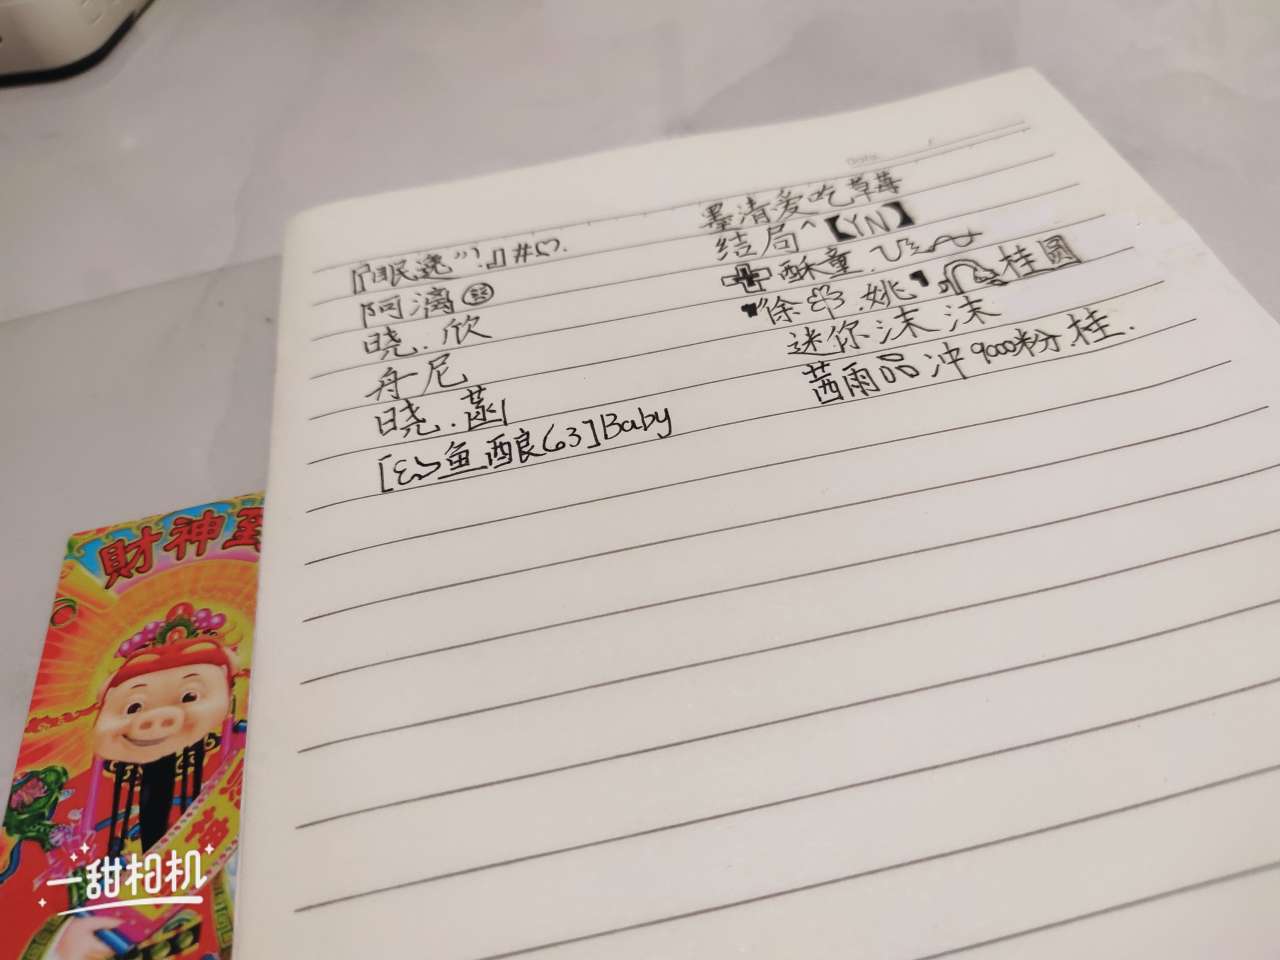 阿漓
晓.欣
舟尼
晓.
鱼酿(63]Baby
墨清爱吃草莓
结局^【YN】
酥童.
徐 .姚 桂圆
迷你沫沫
茜雨品冲9000粉.桂.
財神到
一甜相机